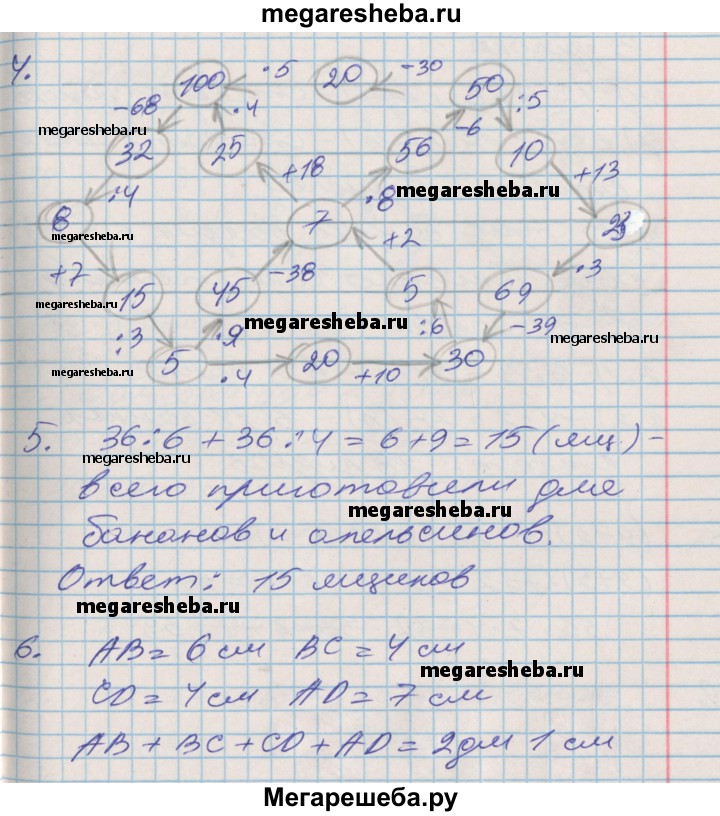 megaresheba.ru
4. 100 ·5 20 -30 50
-68 ·4 -6 :5
megaresheba.ru
32 25 56 10
:4 +18 ·8 +13
megaresheba.ru
8 7 23
megaresheba.ru
+7 -38 +2 ·3
15 45 5 69
megaresheba.ru
:3 ·9 :6 -39
megaresheba.ru
megaresheba.ru
5 ·4 20 +10 30
megaresheba.ru
5. 36:6 + 36:4 = 6+9 = 15 (ящ.) -
megaresheba.ru
всего приготовили для
megaresheba.ru
бананов и апельсинов.
Ответ: 15 ящиков
megaresheba.ru
6. AB = 6 см BC = 4 см
megaresheba.ru
CD = 4 см AD = 7 см
AB + BC + CD + AD = 2дм 1 см
Мегарешеба.ру